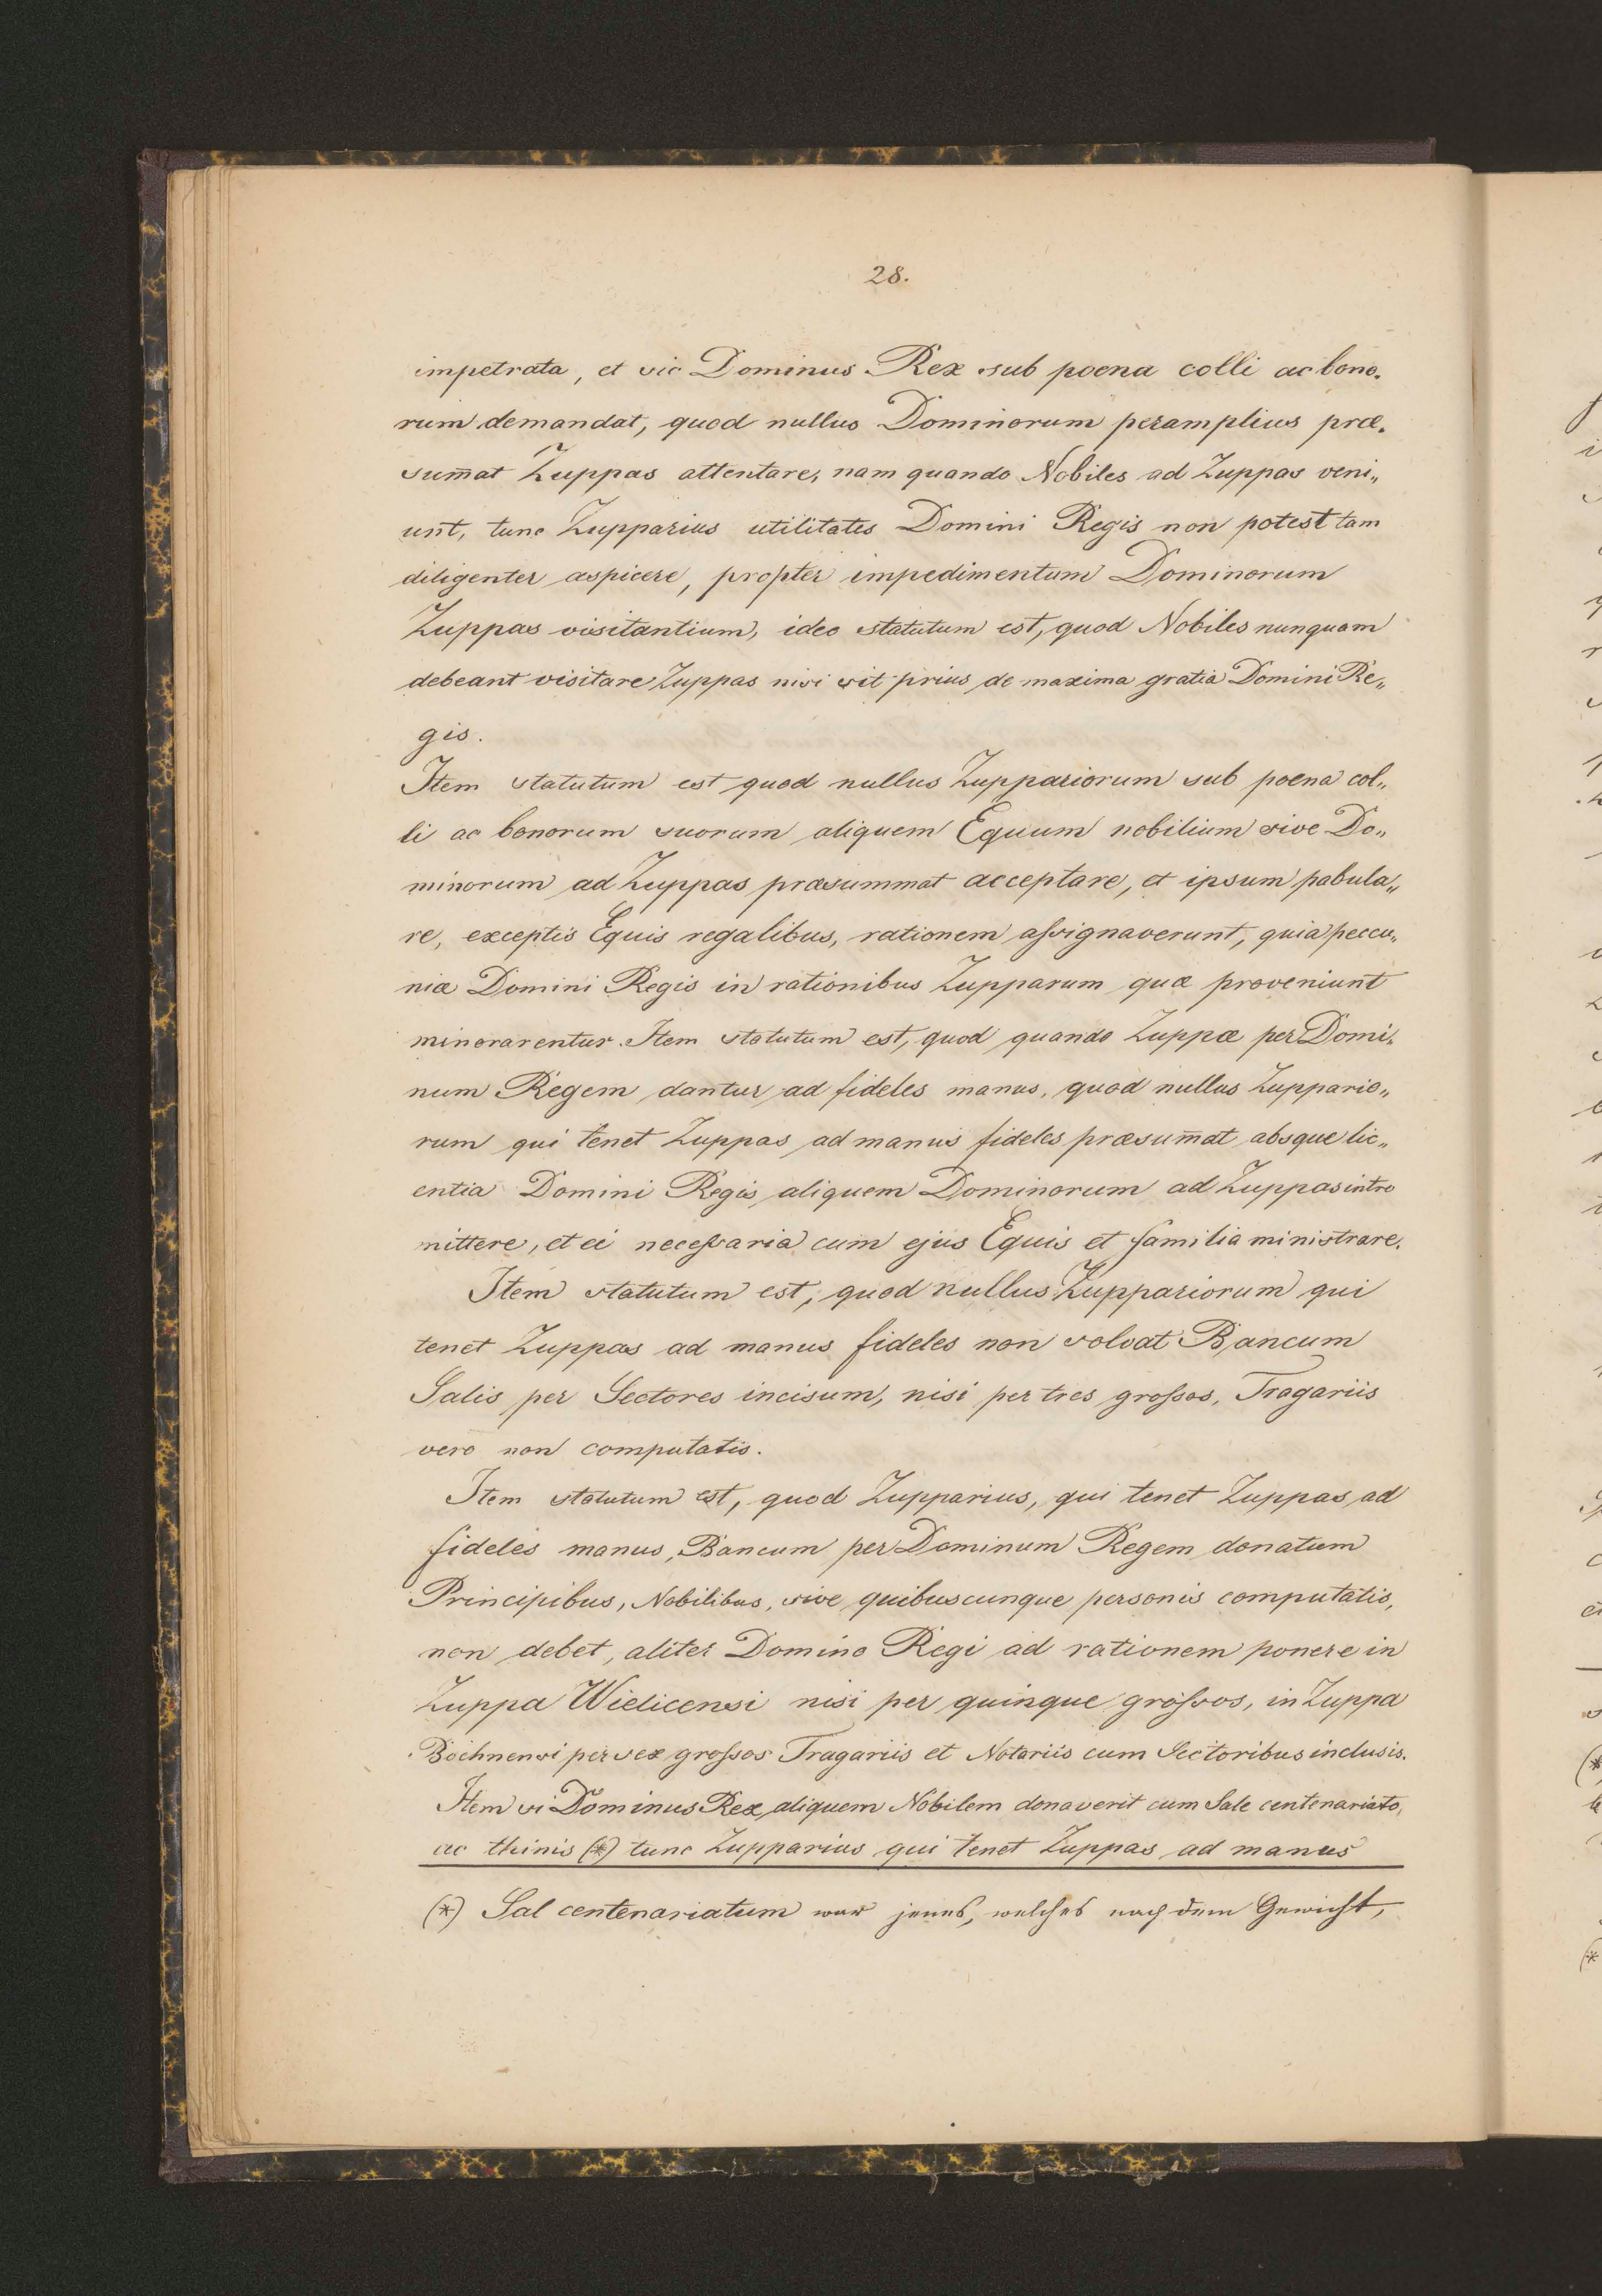 28.
impetrata, et sic Dominus Rex sub poena colli ac bono„
rum demandat, quod nullus Dominorum peramplius præ„
sum̄at Zuppas attentare, nam quando Nobiles ad Zuppas veni„
unt, tunc Zupparius utilitates Domini Regis non potest tam
diligenter aspicere, propter impedimentum Dominorum
Zuppas visitantium, ideo statutum est, quod Nobiles nunquam
debeant visitare Zuppas nisi sit prius de maxima gratia Domini Re„
gis.
Item statutum est quod nullus Zuppariorum sub poena col„
li ac bonorum suorum aliquem Equum nobilium sive Do„
minorum ad Zuppas præsummat acceptare, et ipsum pabula„
re, exceptis Equis regalibus, rationem assignaverunt, quia peccu„
niæ Domini Regis in rationibus Zupparum quæ proveniunt
minorarentur. Item statutum est, quod quando Zuppæ per Domi„
num Regem dantur ad fideles manus, quod nullus Zuppario„
rum qui tenet Zuppas ad manus fideles præsum̄at absque lic„
entia Domini Regis aliquem Dominorum ad Zuppas intro
mittere, et ei necessaria cum ejus Equis et familia ministrare.
Item statutum est, quod nullus Zuppariorum qui
tenet Zuppas ad manus fideles non solvat Bancum
Salis per Sectores incisum, nisi per tres grossos, Tragariis
vero non computatis.
Item statutum est, quod Zupparius, qui tenet Zuppas ad
fideles manus, Bancum per Dominum Regem donatum
Principibus, Nobilibus, sive quibuscunque personis computatis,
non debet, aliter Domino Regi ad rationem ponere in
Zuppa Wielicensi nisi per quinque grossos, in Zuppa
Bochnensi per sex grossos Tragariis et Notariis cum Sectoribus inclusis.
Item si Dominus Rex aliquem Nobilem donaverit cum Sale centenariato,
ac thinis (*) tunc Zupparius qui tenet Zuppas ad manus
(*) Sal centenariatum war jenes, welches nach dem Gewicht,